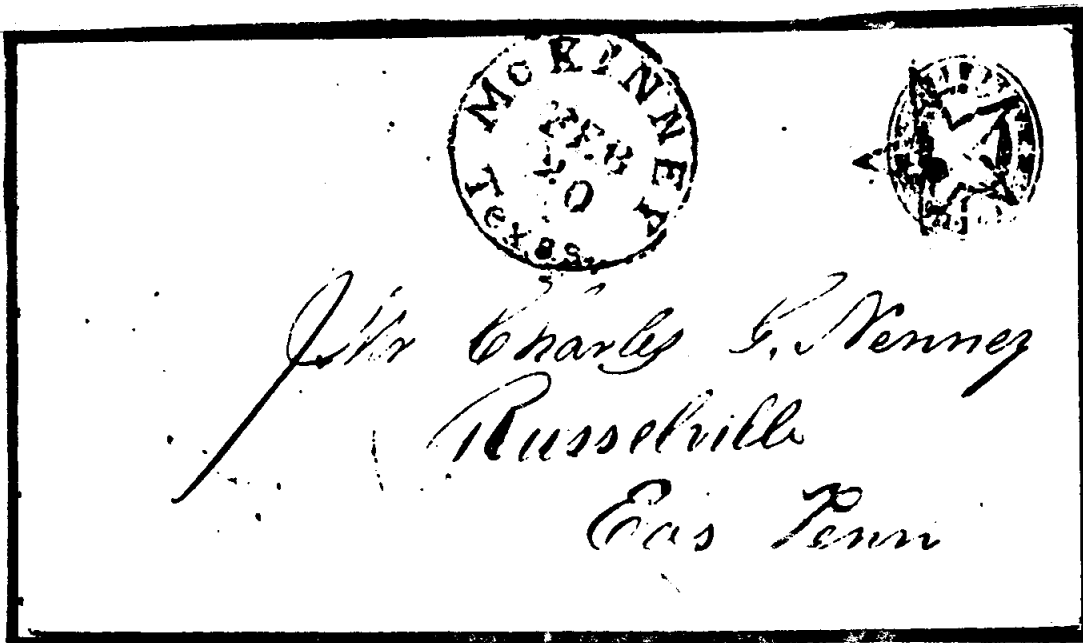 McKINNEY
Texas.
FEB
Mr Charles G. Nenney
Russelville
Eas Tenn